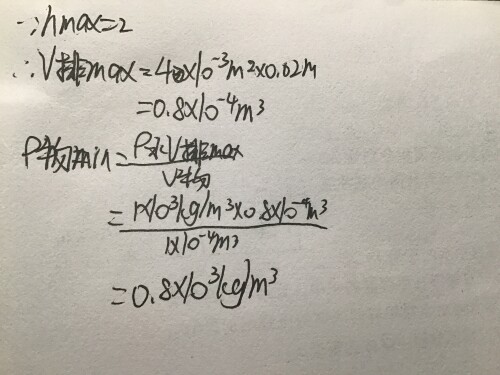 ∵hmax=2
∴V排max=40×10⁻³m²×0.02m
=0.8×10⁻⁴m³
ρ物min=ρ水V排max/V物
=1×10³kg/m³×0.8×10⁻⁴m³/1×10⁻⁴m³
=0.8×10³kg/m³